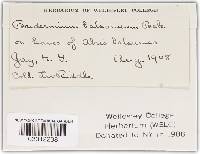 HERBARIUM OF WELLESLEY COLLEGE
Peridermium balsameum Peck
on leaves of Abies balsamea
Jay, N. Y. Aug. 1908
Coll.
Wellesley College
Herbarium (WELC)
Donated to NY in 1986